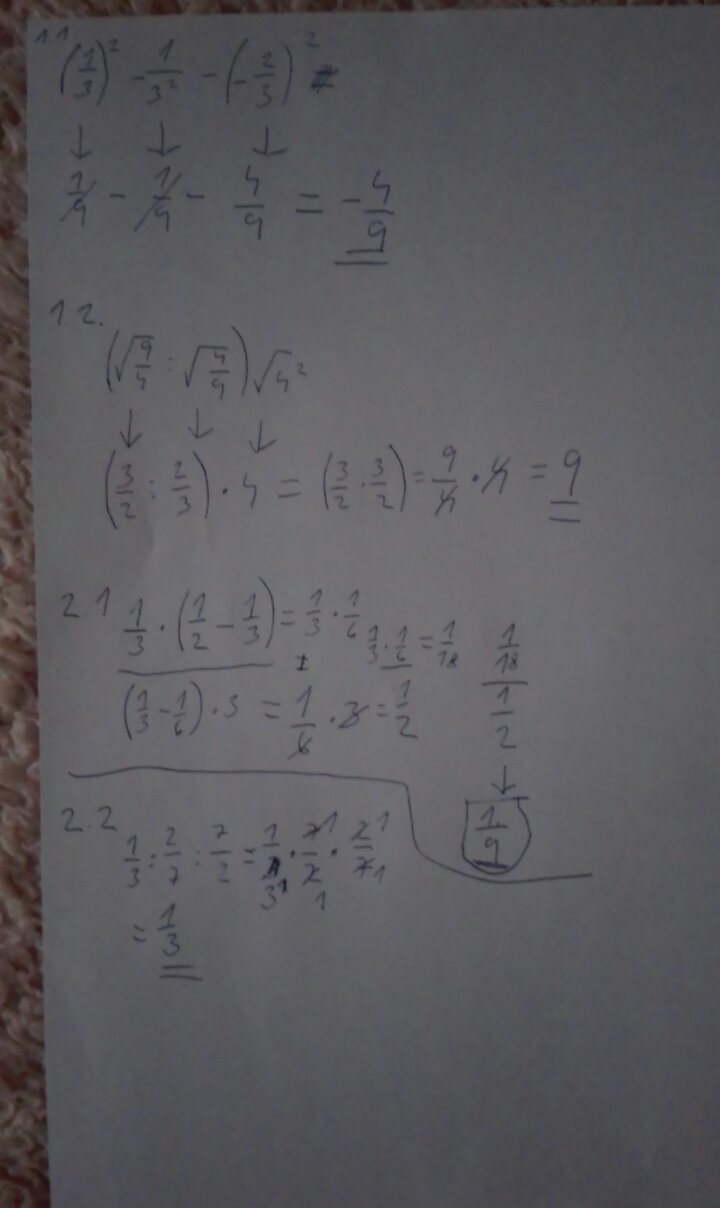 1.1
(1/3)² - 1/3² - (-2/3)²
↓ ↓ ↓
1/9 - 1/9 - 4/9 = -4/9
1 2.
(√9/4 : √4/9) √4²
↓ ↓ ↓
(3/2 : 2/3) · 4 = (3/2 · 3/2) = 9/4 · 4 = 9
2 1
1/3 · (1/2 - 1/3) = 1/3 · 1/6
1/3 · 1/6 = 1/18
(1/3 - 1/6) · 3 = 1/6 · 3 = 1/2
1/18
1/2
↓
1/9
2.2
1/3 : 2/7 : 7/2 = 1/3 · 7/2 · 2/7
= 1/3